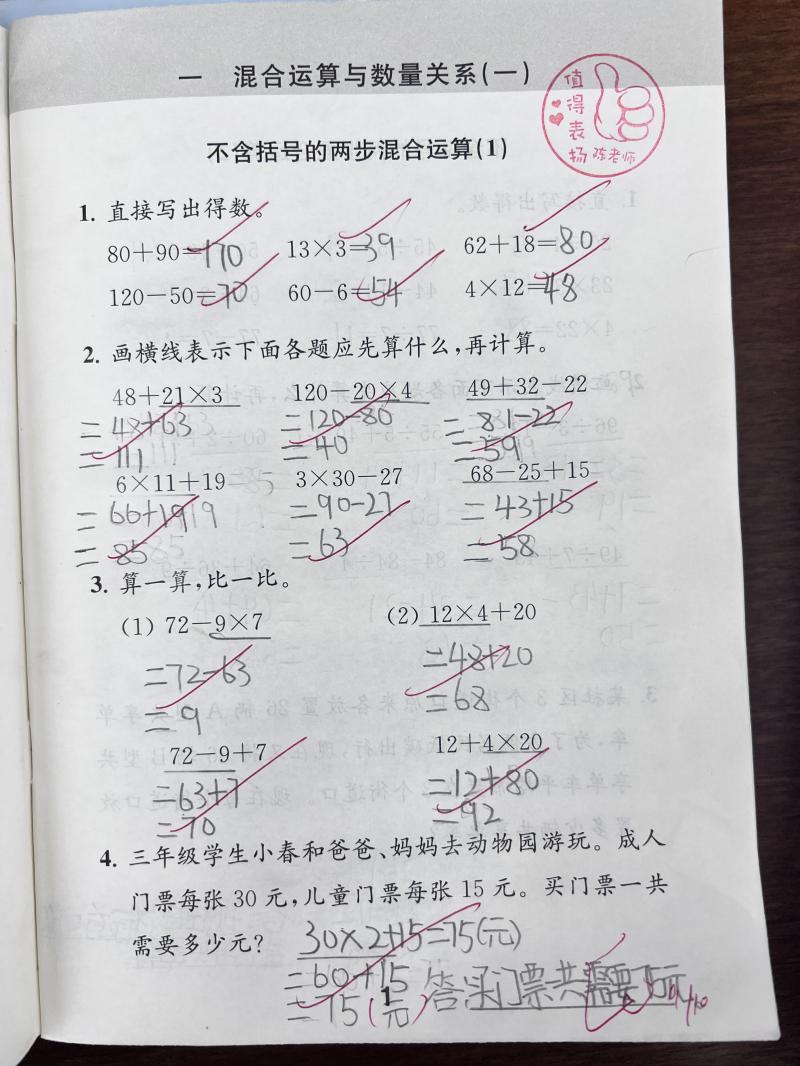 一 混合运算与数量关系(一)
值得表扬 陈老师
不含括号的两步混合运算(1)
1. 直接写出得数。
80+90=170 13×3=39 62+18=80
120-50=70 60-6=54 4×12=48
2. 画横线表示下面各题应先算什么,再计算。
48+21×3 120-20×4 49+32-22
=48+63 =120-80 =81-22
=111 =40 =59
6×11+19 3×30-27 68-25+15
=66+19 =90-27 =43+15
=85 =63 =58
3. 算一算,比一比。
(1) 72-9×7 (2) 12×4+20
=72-63 =48+20
=9 =68
72-9+7 12+4×20
=63+7 =12+80
=70 =92
4. 三年级学生小春和爸爸、妈妈去动物园游玩。成人
门票每张 30 元,儿童门票每张 15 元。买门票一共
需要多少元? 30×2+15=75(元)
=60+15 答:买门票共需要75元
=75(元)
1